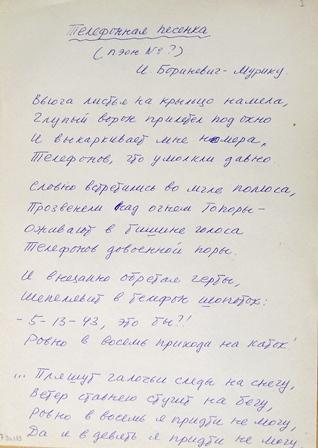 Телефонная песенка
(пэон № ?)
И. Бораневич - Мурику.
Вьюга листья на крыльцо намела,
Глупый ворон прилетел под окно
И выкаркивает мне номера,
Телефонов, что умолкли давно.
Словно встретились во мгле полюса,
Прозвенели над огнем топоры -
Оживают в тишине голоса
Телефонов довоенной поры.
И внезапно обретая черты,
Шепелявит в телефон шопоток:
- 5-13-43, это ты?!
Ровно в восемь приходи на каток!
... Пляшут галочьи следы на снегу,
Ветер ставнею стучит на бегу,
Ровно в восемь я придти не могу,
Да и в девять я придти не могу